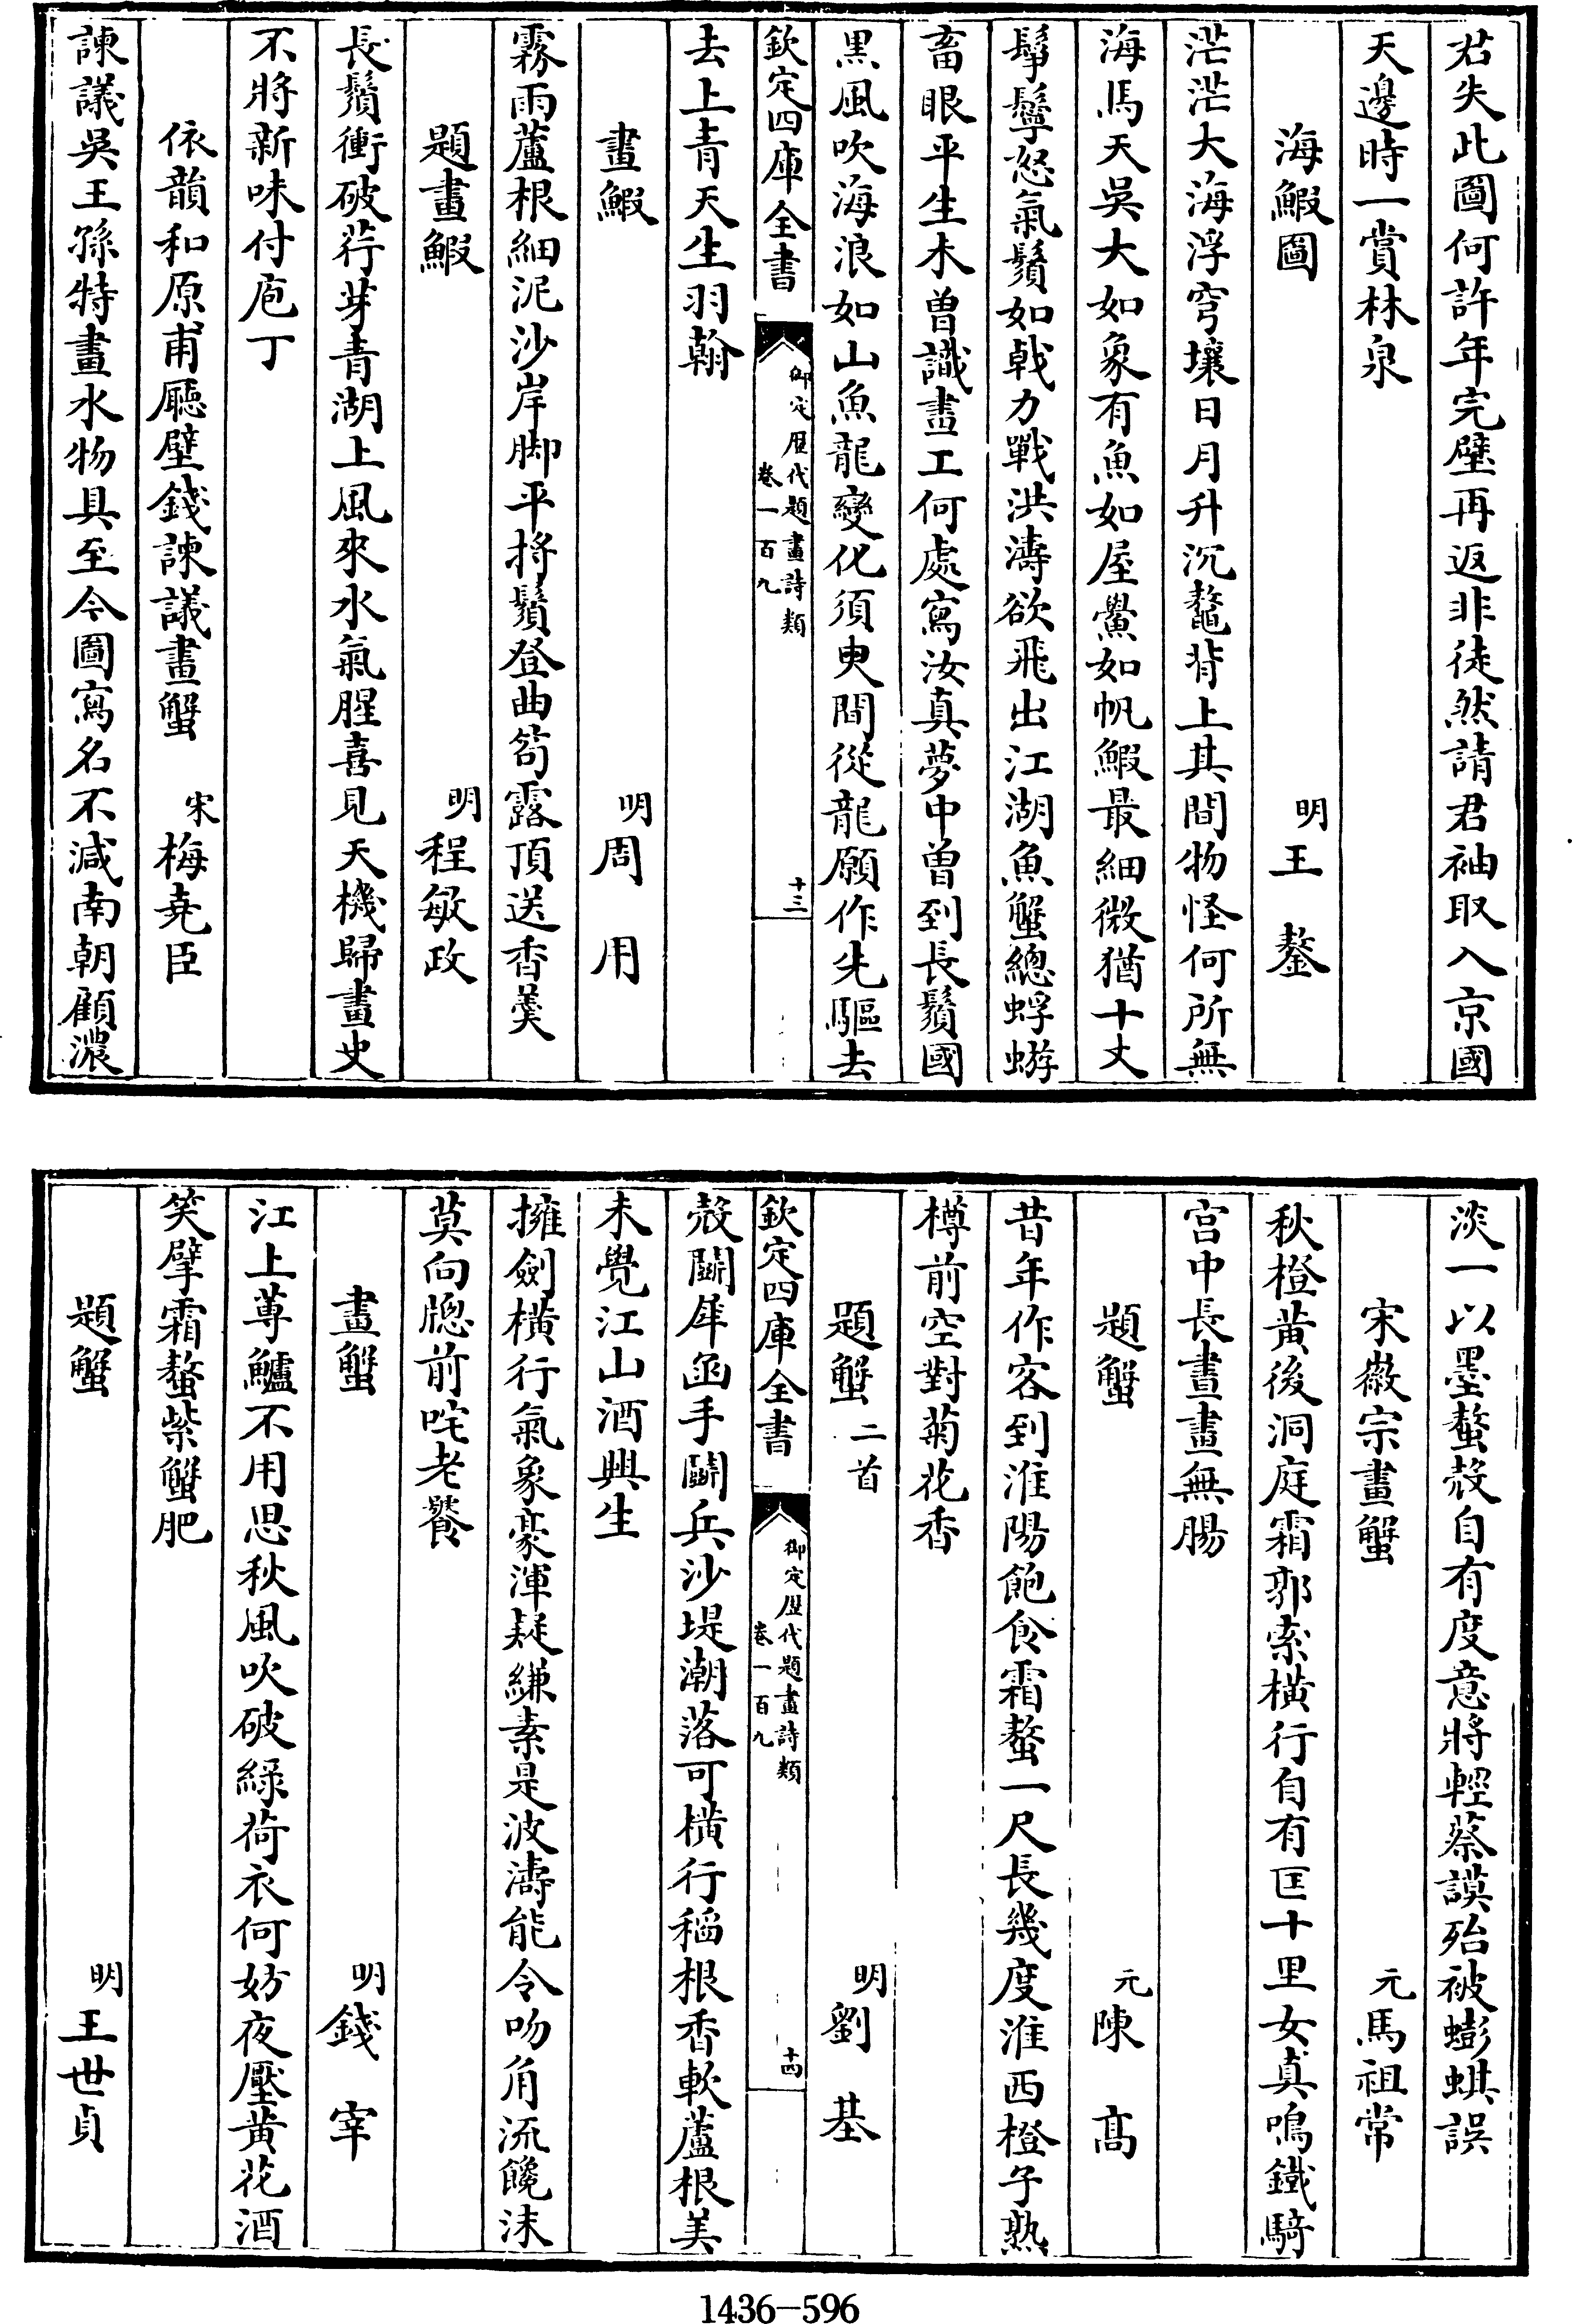 君失此圖何許年完璧再返非徒然請君袖取入京國
天邊時一賞林泉
海鰕圖 明王鏊
茫茫大海浮穹壤日月升沉鼇背上其間物怪何所無
海馬天吳大如象有魚如屋鱟如帆鰕最細微猶十丈
髼鬡怒氣鬚如戟力戰洪濤欲飛出江湖魚蟹總蜉蝣
畜眼平生未曽識畫工何處寫汝真夢中曽到長鬚國
黒風吹海浪如山魚龍變化須臾間從龍願作先驅去
欽定四庫全書 御定歴代題畫詩類 卷一百九 十三
去上青天生羽翰
畫鰕 明周用
霧雨蘆根細泥沙岸脚平捋鬚登曲笱露頂送香羹
題畫鰕 明程敏政
長鬚衝破荇芽青湖上風來水氣腥喜見天機歸畫史
不將新味付庖丁
依韻和原甫廳壁錢諫議畫蟹 宋梅堯臣
諫議吳王孫特畫水物具至今圖寫名不減南朝顧濃
淡一以墨螯殻自有度意將輕蔡謨殆被蟛蜞誤
宋徽宗畫蟹 元馬祖常
秋橙黄後洞庭霜郭索橫行自有匡十里女真鳴鐵騎
宫中長晝畫無腸
題蟹 元陳髙
昔年作客到淮陽飽食霜螯一尺長幾度淮西橙子熟
樽前空對菊花香
題蟹二首 明劉基
欽定四庫全書 御定歴代題畫詩類 卷一百九 十四
殻鬭犀函手鬭兵沙堤潮落可橫行稻根香軟蘆根美
未覺江山酒興生
擁劍橫行氣象豪渾疑縑素是波濤能令吻角流饞沫
莫向牕前咤老饕
畫蟹 明錢宰
江上蓴鱸不用思秋風吹破綠荷衣何妨夜壓黄花酒
笑擘霜螯紫蟹肥
題蟹 明王世貞
1436—596